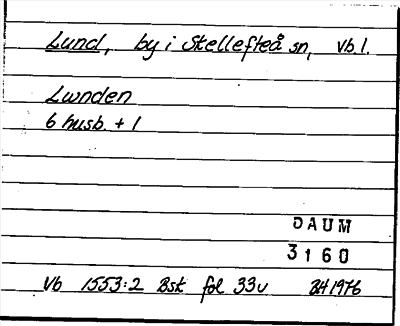 Lund, by i Skellefteå sn, Vb.l.
Lwnden
6 husb. + 1
DAUM
3160
Vb 1553:2 Bsk fol 33v BH 1976